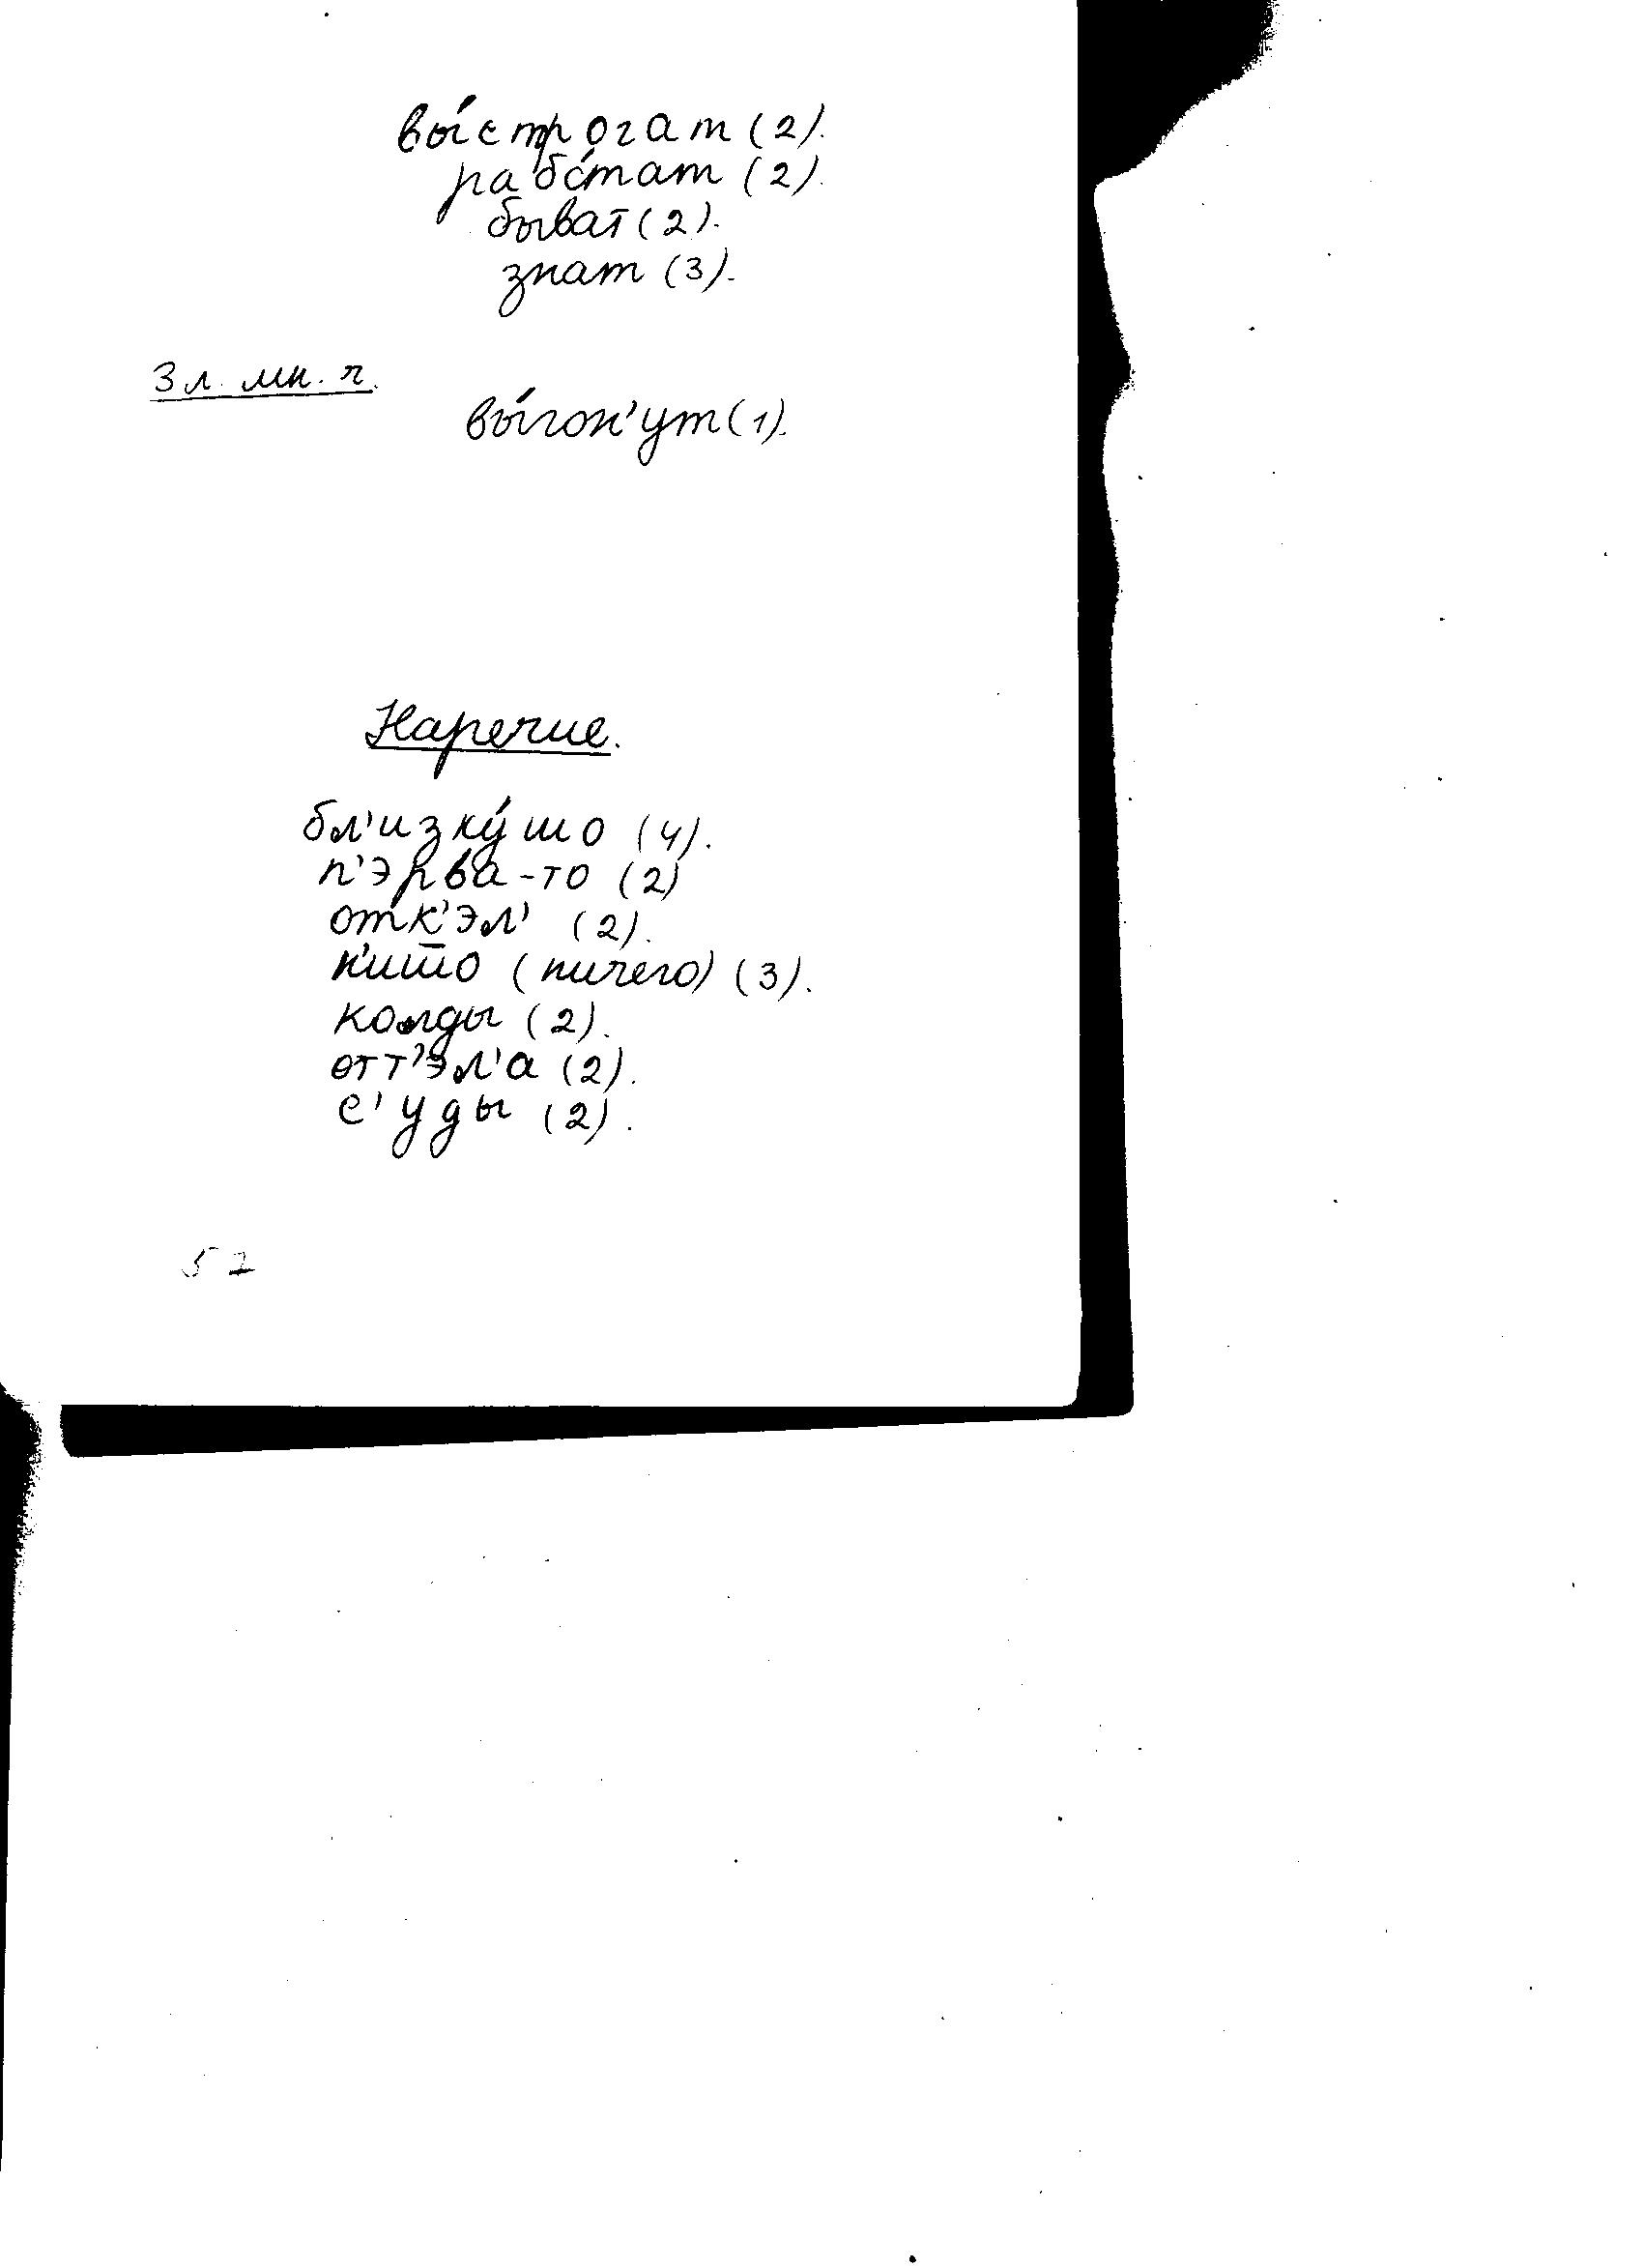 вы́строгат (2).
рабо́тат (2).
быват (2).
знат (3).
3 л. мн. ч.
вы́гон'ут (1).
Наречие.
бл'изку́шо (4).
п'эрва-то (2)
отк'эл' (2).
н'ишто (ничего) (3).
колды (2).
отт'эл'а (2).
с'уды (2).
57